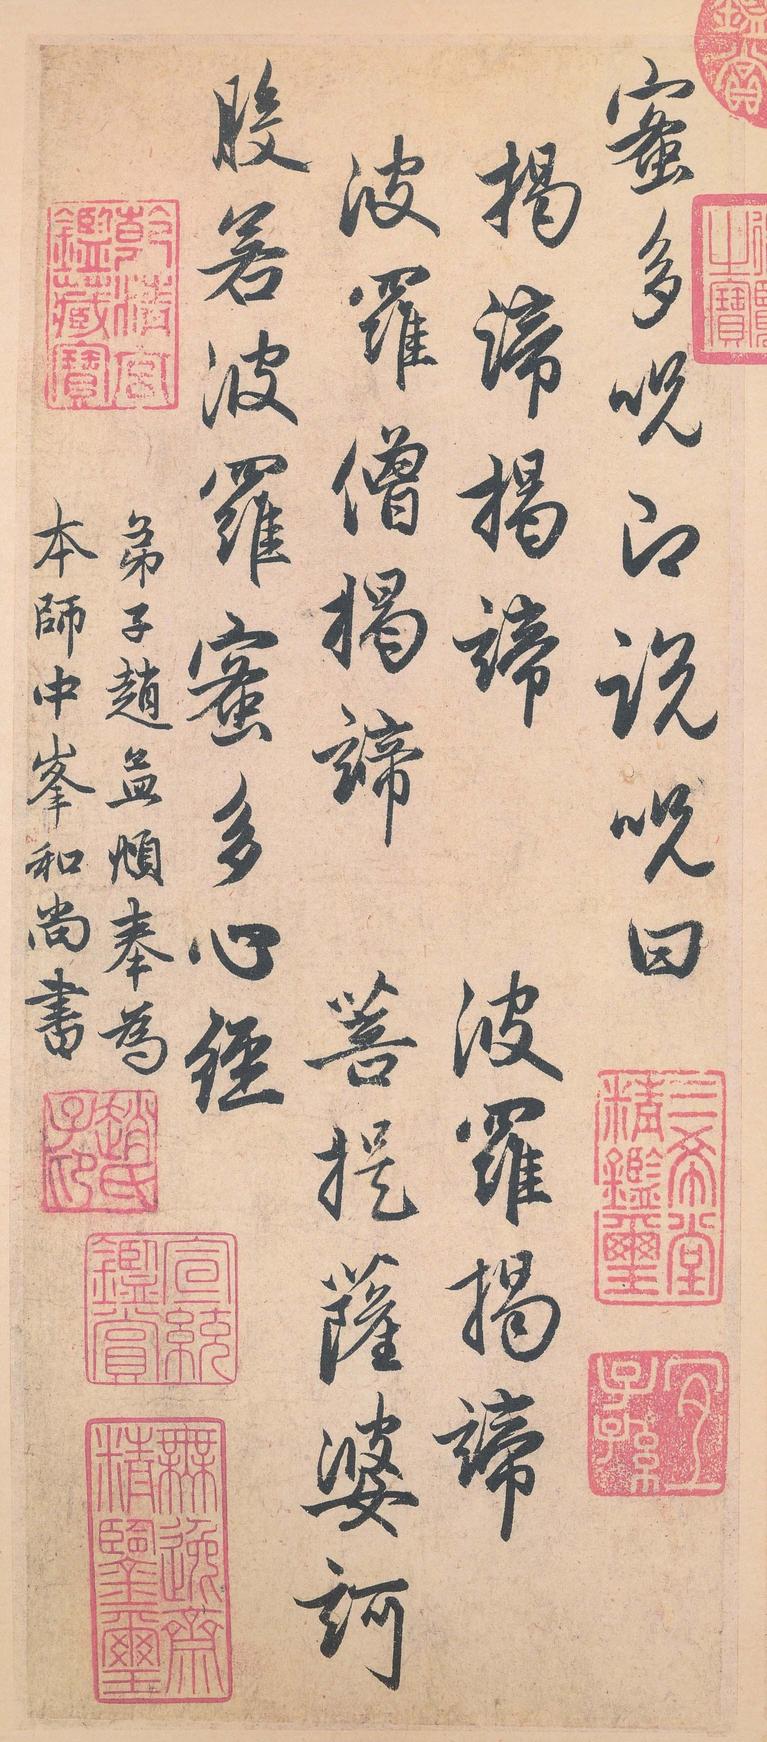 蜜多呪即說呪曰
揭諦揭諦 波羅揭諦
波羅僧揭諦 菩提薩婆訶
般若波羅蜜多心經
弟子趙孟頫奉為
本師中峯和尚書
鑑賞
之寶
三希堂
精鑑璽
宜
子孫
乾清宮
鑑藏寶
趙氏
子印
宣統
鑑賞
無逸齋
精鑒璽